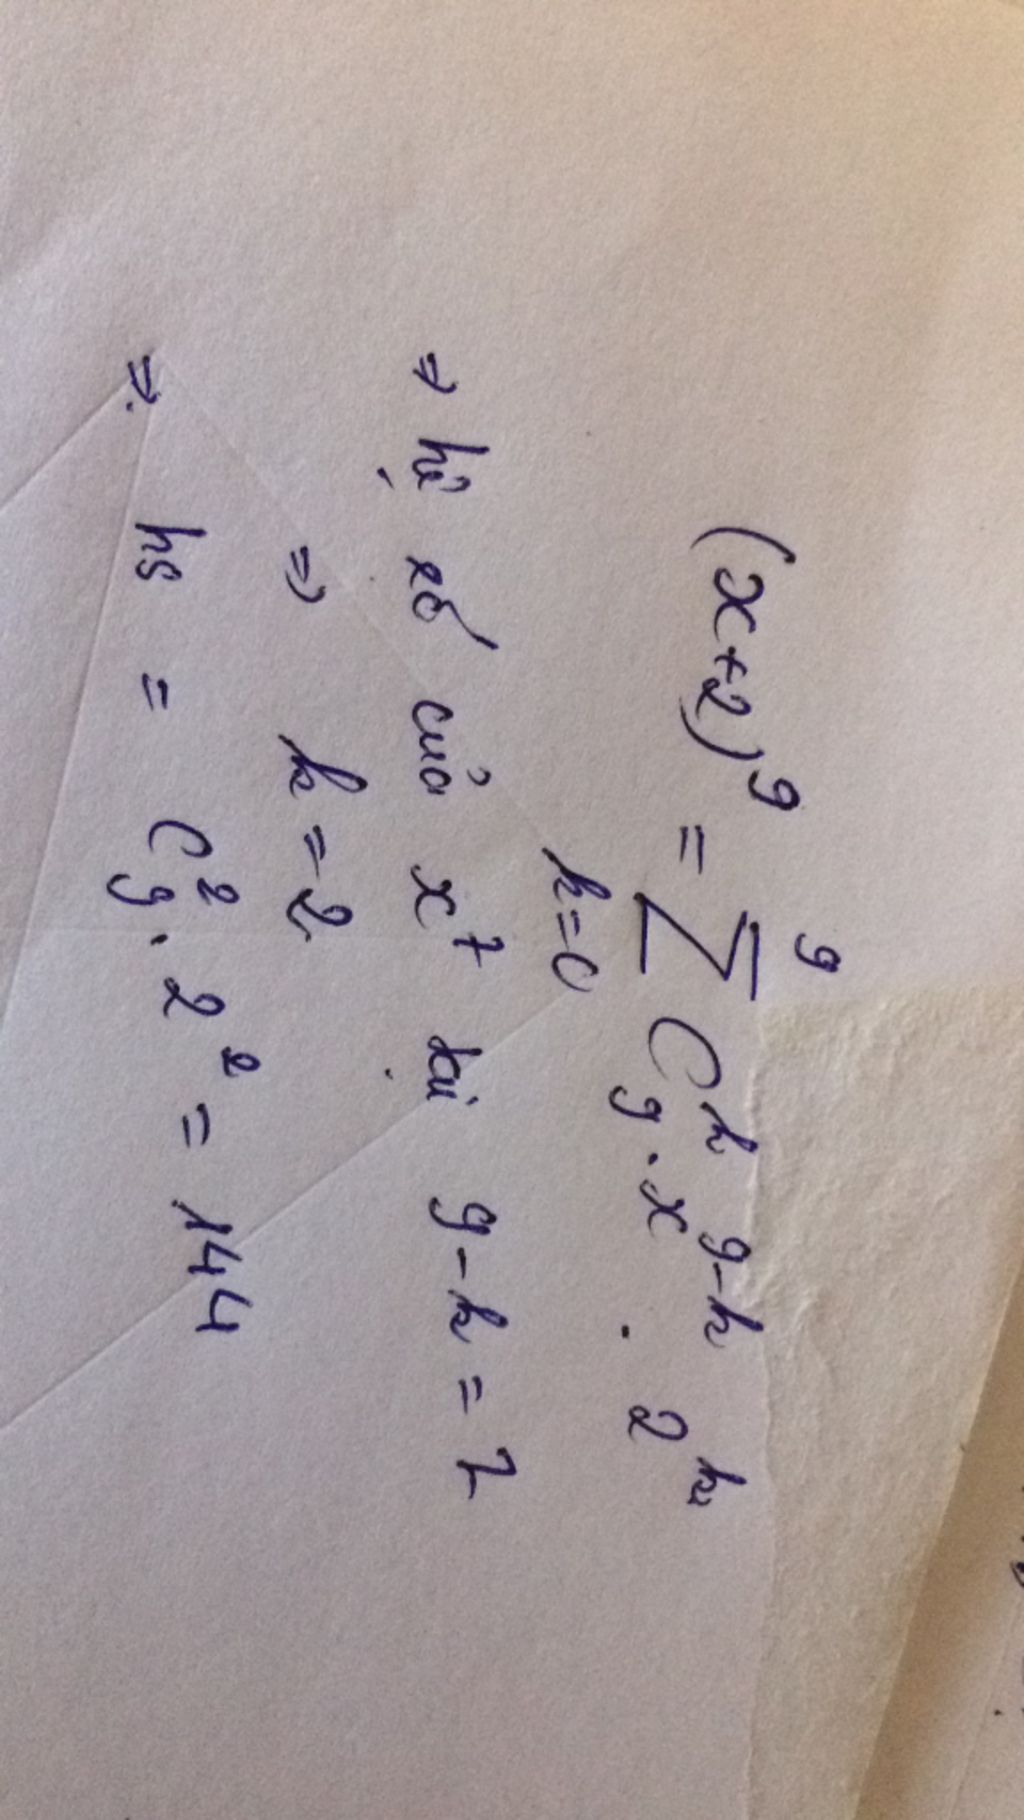 (x+2)^9 = \sum_{k=0}^{9} C_9^k . x^{9-k} . 2^k
⇒ hệ số của x^7 tại 9-k = 7
⇒ k = 2
⇒ hs = C_9^2 . 2^2 = 144